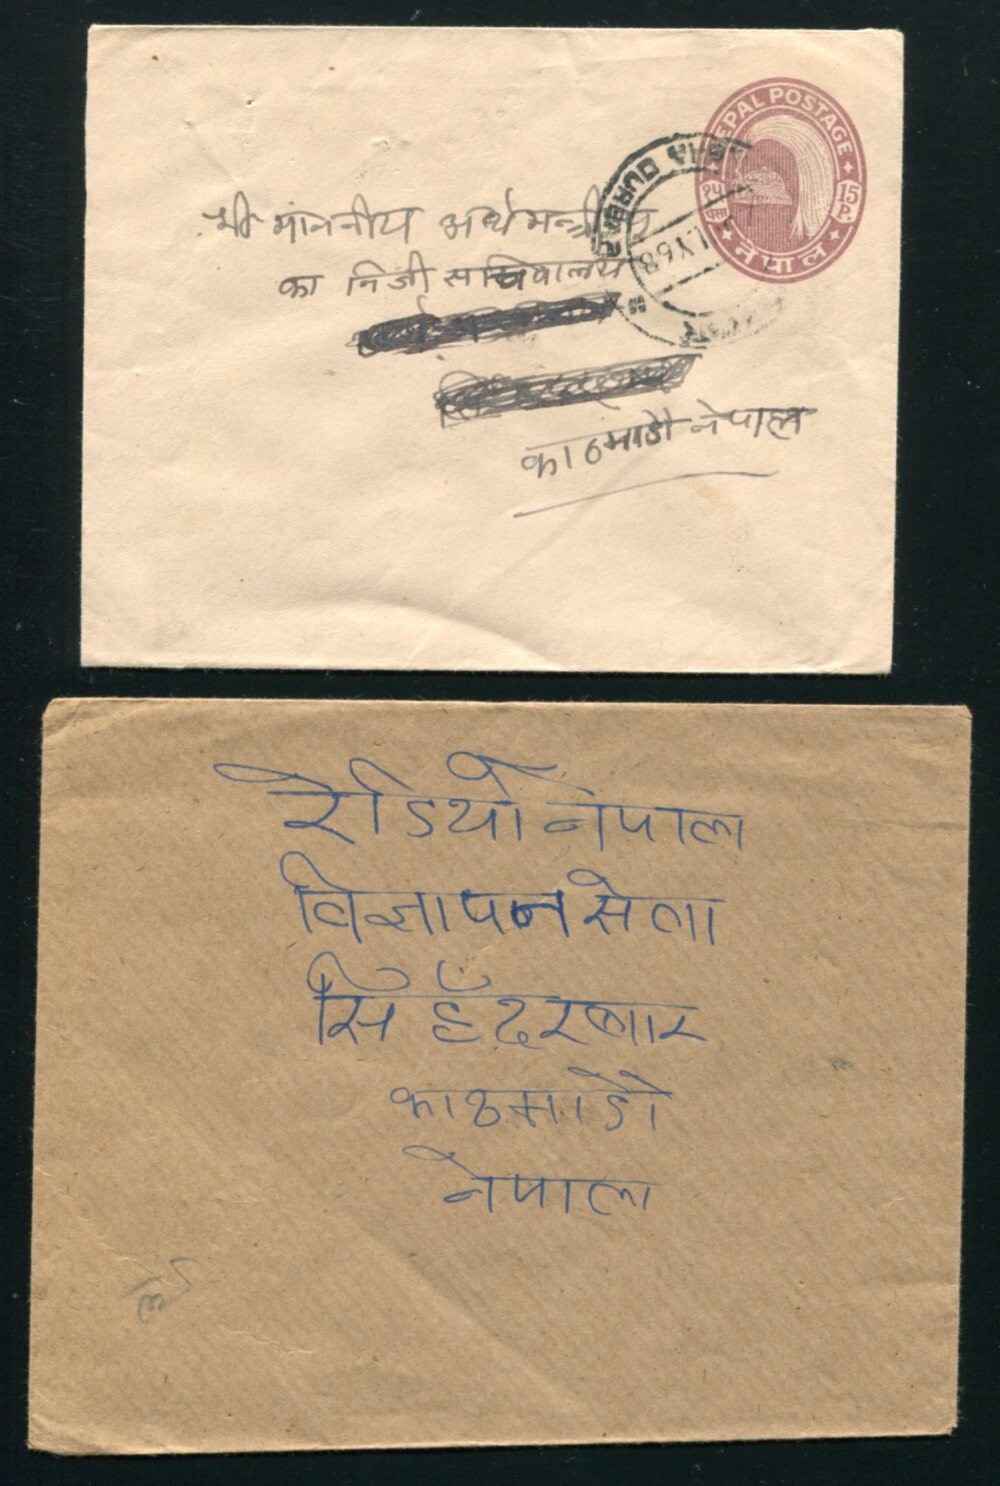 NEPAL POSTAGE
१५ पैसा
15 P.
नेपाल
DURBAR
LY68
श्री माननीय अर्थ मन्त्री
का निजी सचिवालय
काठमाडौं नेपाल
रेडियो नेपाल
विज्ञापन सेवा
सिंहदरबार
काठमाडौं
नेपाल